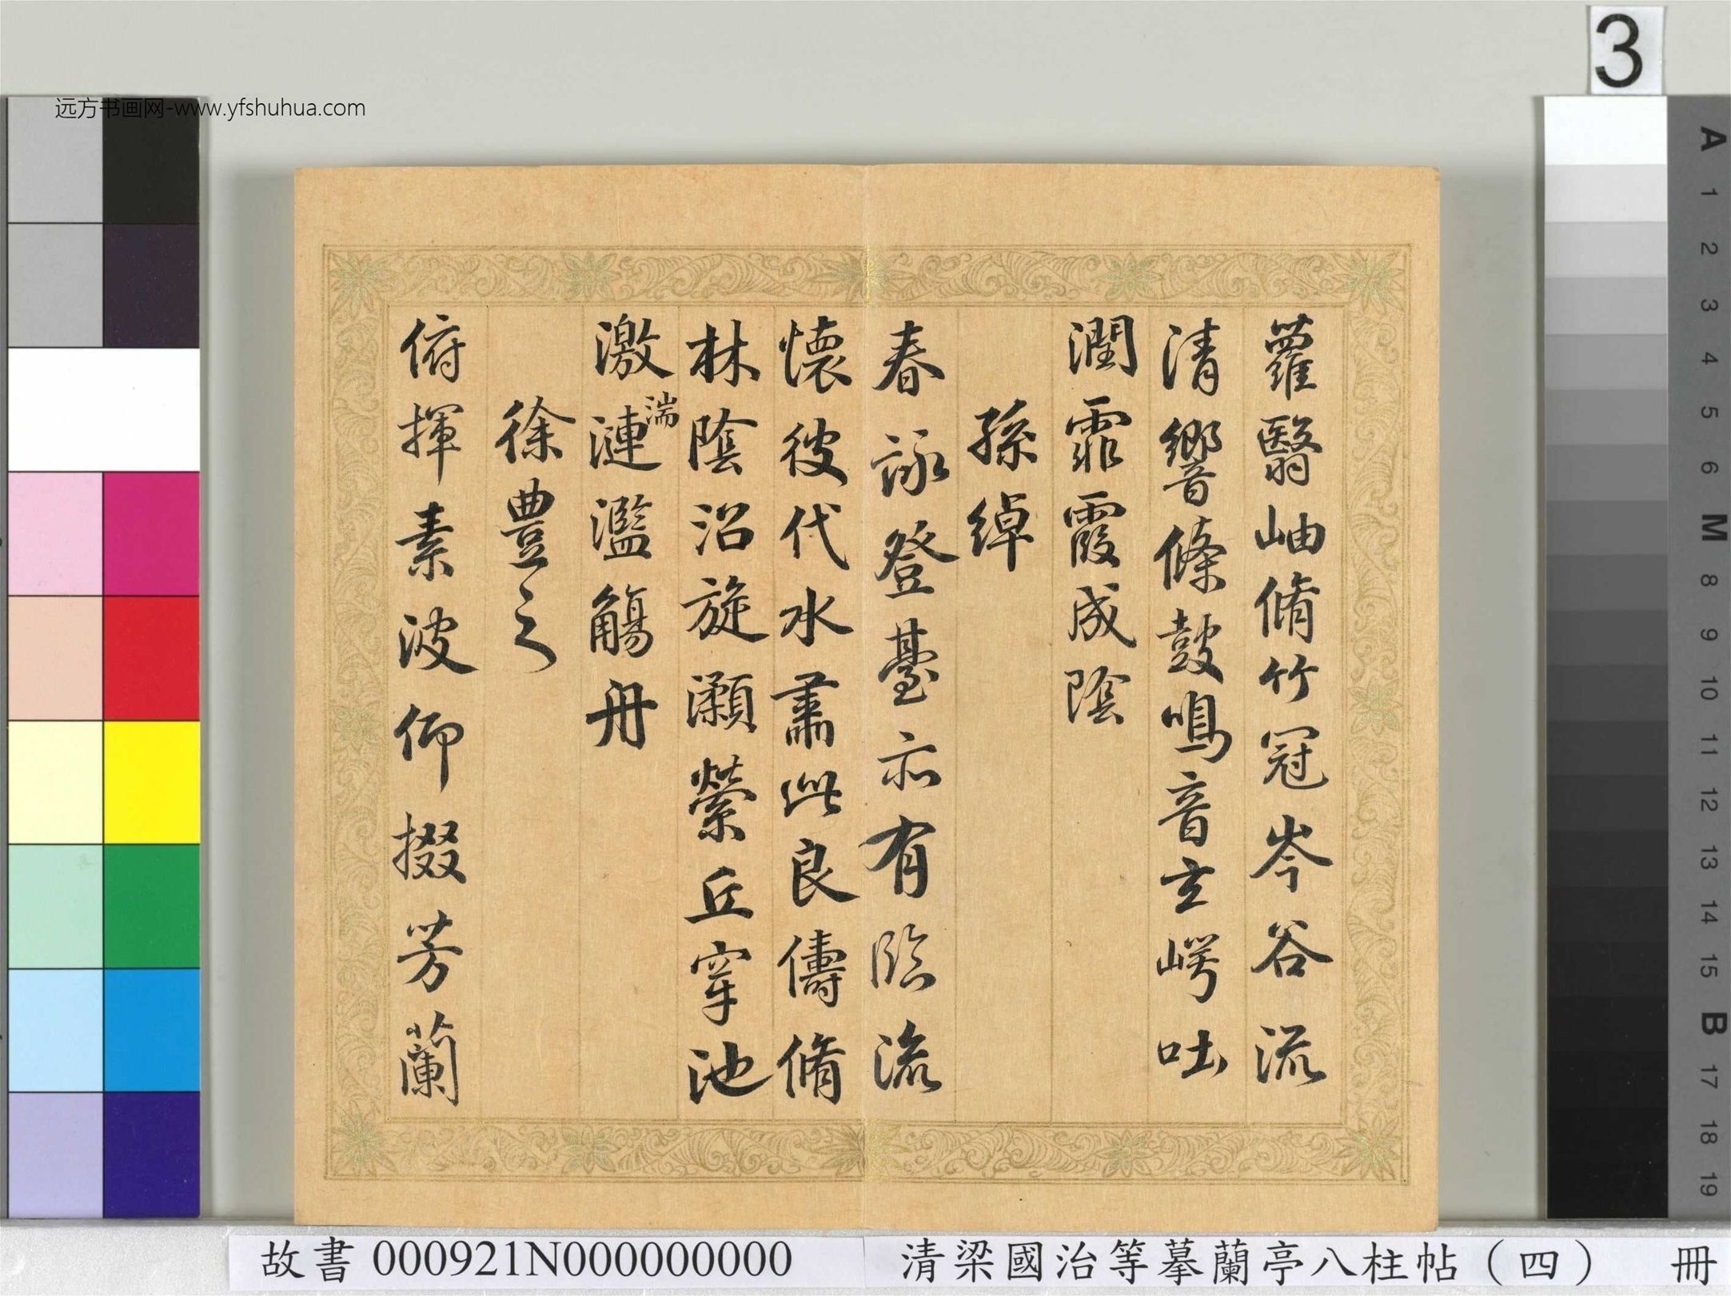 3
远方书画网-www.yfshuhua.com
蘿翳岫脩竹冠岑谷流
清響條鼓鳴音玄崿吐
潤霏霞成陰
孫綽
春詠登臺亦有臨流
懷彼代水肅此良儔脩
林陰沼旋瀨縈丘穿池
激漣濫觴舟
湍
徐豊之
俯揮素波仰掇芳蘭
A
1
2
3
4
5
6
M
8
9
10
11
12
13
14
15
B
17
18
19
故書 000921N000000000
清梁國治等摹蘭亭八柱帖(四) 冊